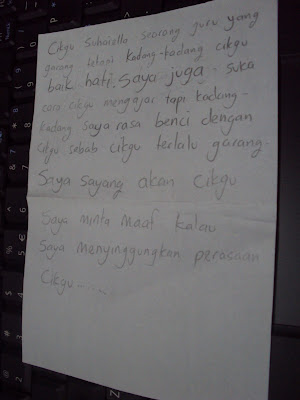 Cikgu Suhaiella seorang guru yang
garang tetapi kadang-kadang cikgu
baik hati. Saya juga suka
cara cikgu mengajar tapi kadang-
kadang saya rasa benci dengan
cikgu sebab cikgu terlalu garang.
Saya sayang akan Cikgu
Saya minta maaf kalau
Saya menyinggungkan perasaan
Cikgu......